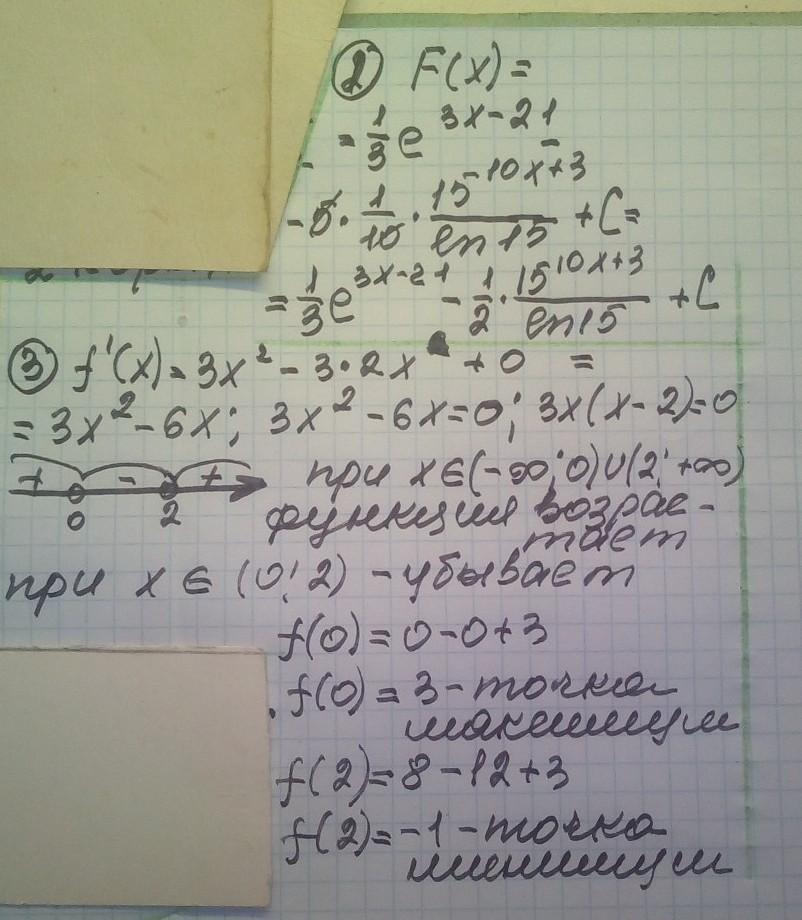 ② F(x) =
= 1/3 e^(3x-21) -
-5 · 1/10 · 15^(-10x+3)/ln15 + C =
= 1/3 e^(3x-21) - 1/2 · 15^(10x+3)/ln15 + C
③ f'(x) = 3x² - 3·2x + 0 =
= 3x² - 6x; 3x² - 6x = 0; 3x(x-2)=0
+ - + при x∈(-∞;0)∪(2;+∞)
0 2 функция возрас-
тает
при x ∈ (0;2) - убывает
f(0) = 0-0+3
f(0) = 3 - точка
максимум
f(2) = 8-12+3
f(2) = -1 - точка
минимум